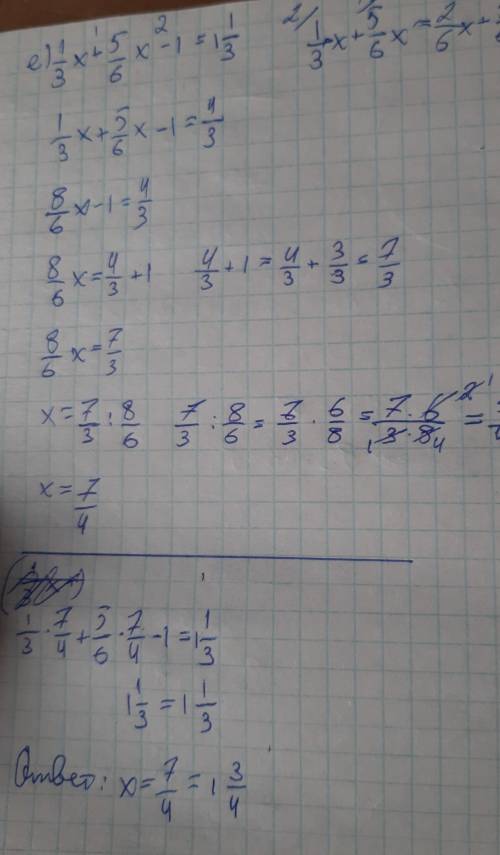 е) 1/3 x + 5/6 x - 1 = 1 1/3
1 2
2) 1/3 x + 5/6 x = 2/6 x +
1/3 x + 5/6 x - 1 = 4/3
8/6 x - 1 = 4/3
8/6 x = 4/3 + 1 4/3 + 1 = 4/3 + 3/3 = 7/3
8/6 x = 7/3
x = 7/3 : 8/6 7/3 : 8/6 = 7/3 · 6/8 = 7 · 6 / 3 · 8 =
x = 7/4
1/3 · 7/4 + 5/6 · 7/4 - 1 = 1 1/3
1 1/3 = 1 1/3
Ответ: x = 7/4 = 1 3/4